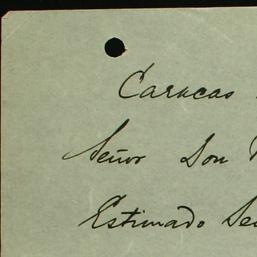 Caracas
Señor Don
Estimado